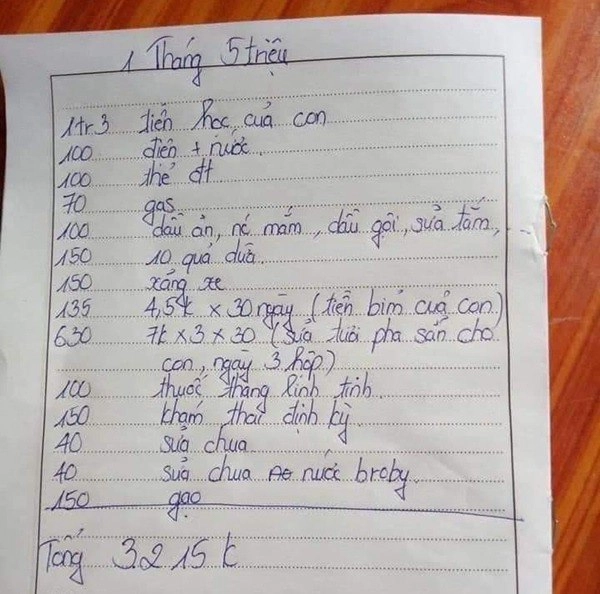 1 Tháng 5 triệu
1tr3 tiền học của con
100 điện + nước.
100 thẻ đt
70 gas
100 dầu ăn, nc mắm, dầu gội, sữa tắm, ...
150 10 quả dừa
150 xăng xe
135 4,5k x 30 ngày (tiền bỉm của con)
630 7k x 3 x 30 (sữa tươi pha sẵn cho
con, ngày 3 hộp)
100 thuốc thang linh tinh.
150 khám thai định kỳ.
40 sữa chua
40 sữa chua nước broby.
150 gạo
Tổng 3.215k